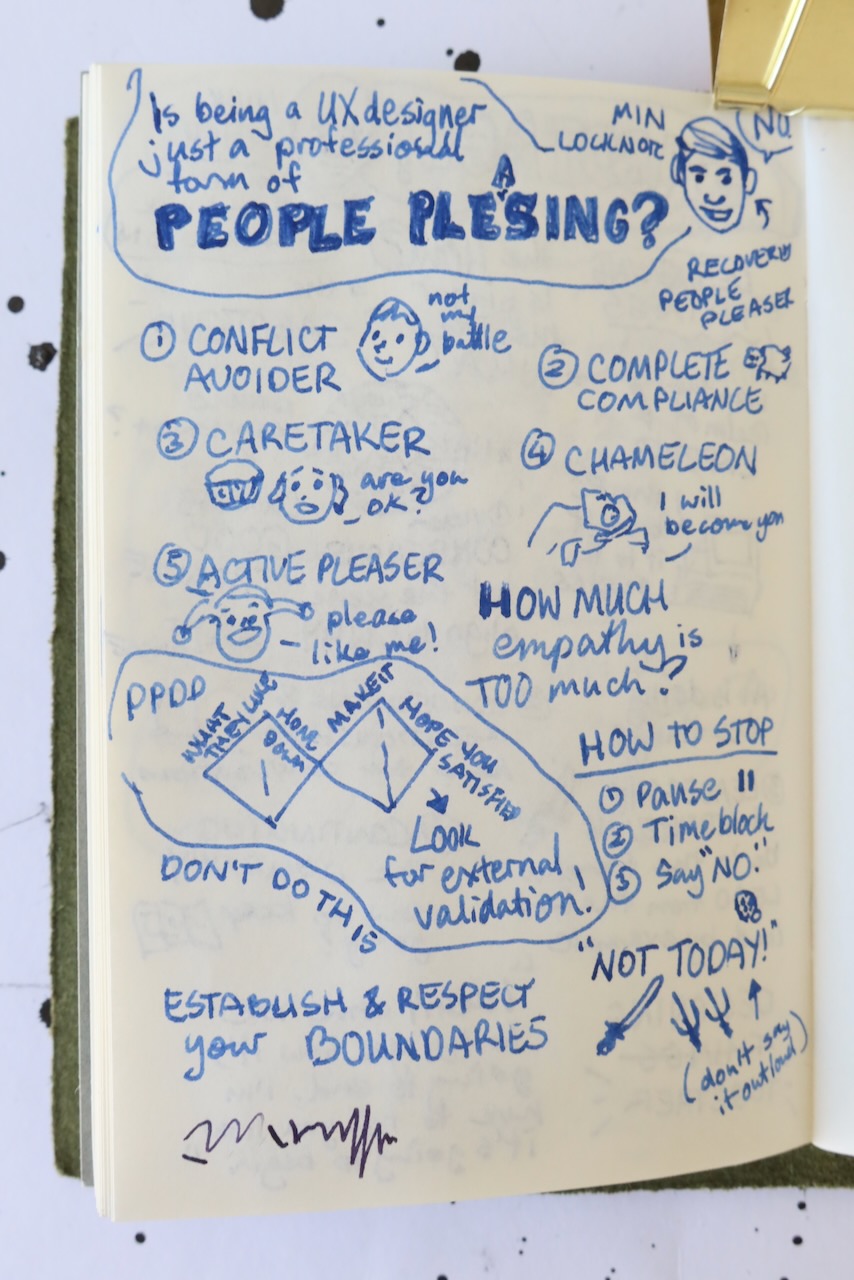 Is being a UX designer
just a professional
form of
PEOPLE PLEASING?
MIN
LOCKNOTE
NO.
RECOVERING
PEOPLE
PLEASER
① CONFLICT
AVOIDER
not
my
battle
② COMPLETE
COMPLIANCE
③ CARETAKER
are you
ok?
④ CHAMELEON
I will
become you
⑤ ACTIVE PLEASER
please
like me!
HOW MUCH
empathy is
TOO much?
DPDD
WHAT
THEY LIKE
HONE
down
MAKE IT
HOPE YOU
SATISFIED
LOOK
for external
validation!
DON'T DO THIS
HOW TO STOP
① Pause II
② Timeblock
③ Say "NO."
"NOT TODAY!"
(don't say
it outloud)
ESTABLISH & RESPECT
your BOUNDARIES